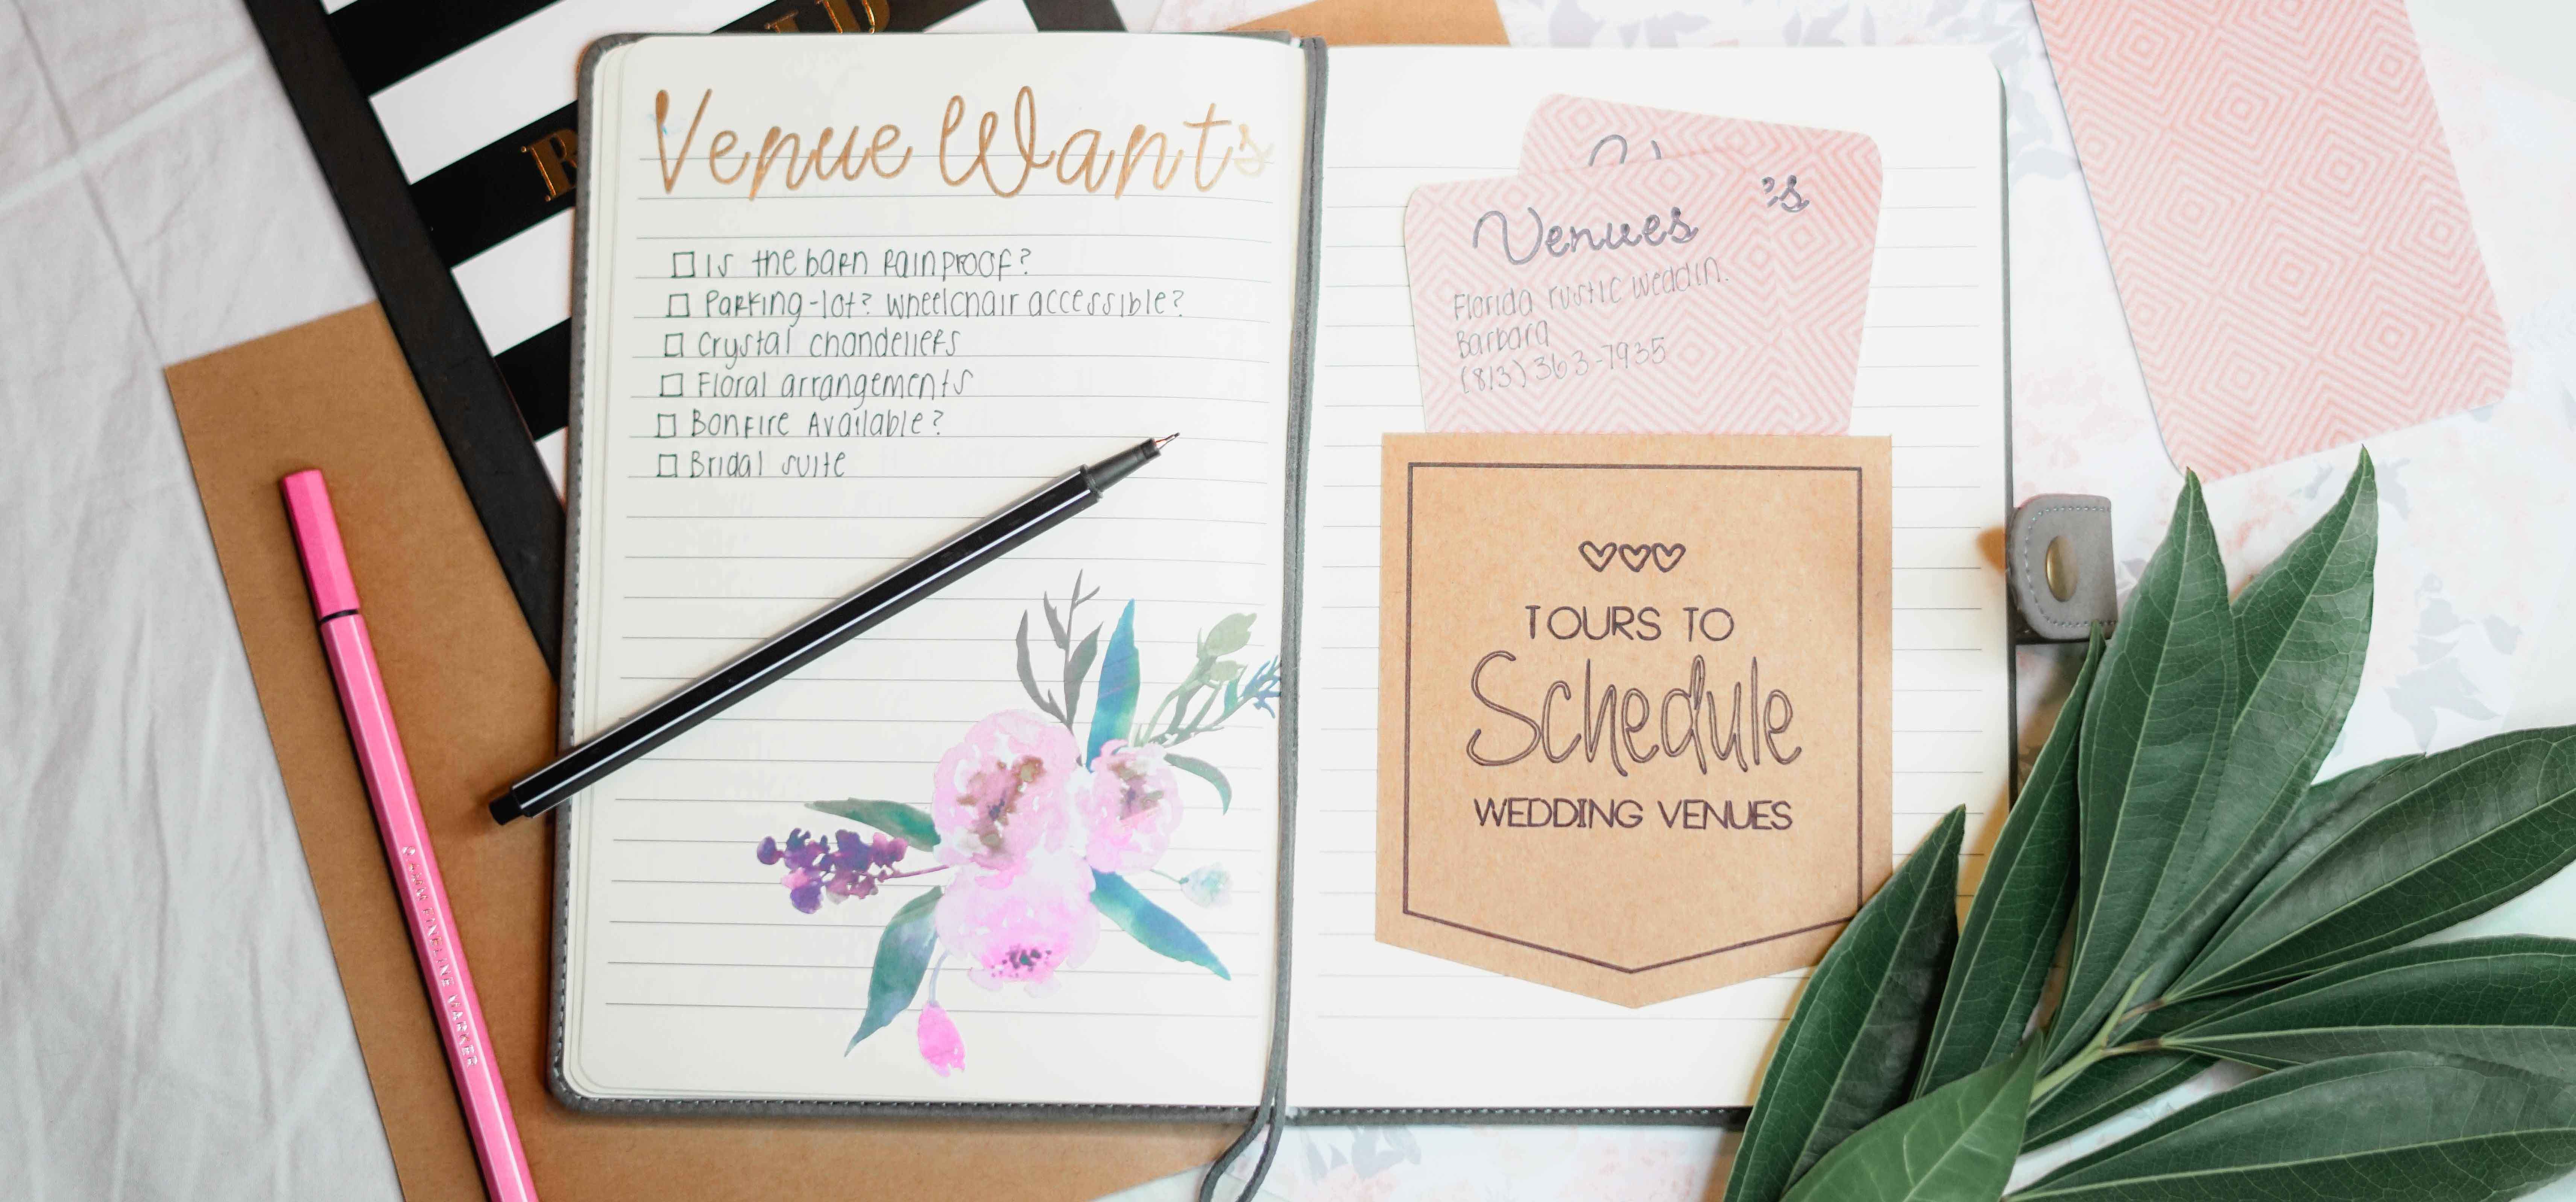 Venue Wants
Is the barn rainproof?
Parking-lot? Wheelchair accessible?
Crystal chandeliers
Floral arrangements
Bonfire Available?
Bridal suite
Venues 's
Florida rustic weddin.
Barbara
(813) 363-7935
TOURS TO
Schedule
WEDDING VENUES
FINELINE MARKER